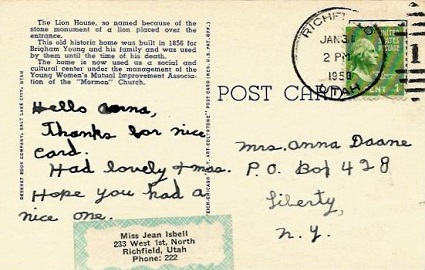 The Lion House, so named because of the
stone monument of a lion placed over the
entrance.
This old historic home was built in 1856 for
Brigham Young and his family and was used
by them until the time of his death.
The home is now used as a social and
cultural center under the management of the
Young Women's Mutual Improvement Associa-
tion of the "Mormon" Church.
DESERET BOOK COMPANY, SALT LAKE CITY, UTAH
POST CARD
RICHFIELD
JAN 31
2 PM
1950
UTAH
UNITED
STATES
POSTAGE
Hello Anna,
Thanks for nice
card.
Had lovely Xmas.
Hope you had a
nice one.
Mrs. Anna Doane
P. O. Box 428
Liberty,
N. Y.
Miss Jean Isbell
233 West 1st, North
Richfield, Utah
Phone: 222